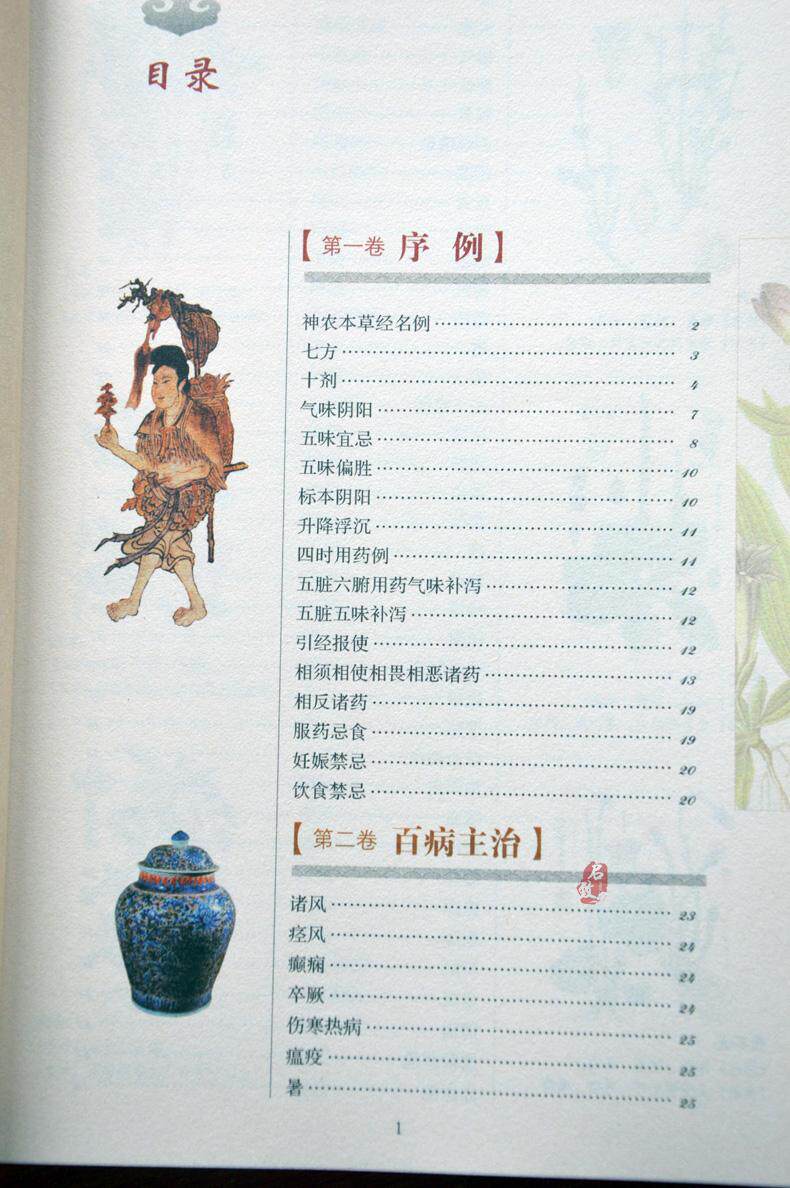 目录
【第一卷 序例】
神农本草经名例 2
七方 3
十剂 4
气味阴阳 7
五味宜忌 8
五味偏胜 10
标本阴阳 10
升降浮沉 11
四时用药例 11
五脏六腑用药气味补泻 12
五脏五味补泻 12
引经报使 12
相须相使相畏相恶诸药 13
相反诸药 19
服药忌食 19
妊娠禁忌 20
饮食禁忌 20
【第二卷 百病主治】
诸风 23
痉风 24
癫痫 24
卒厥 24
伤寒热病 25
瘟疫 25
暑 25
1